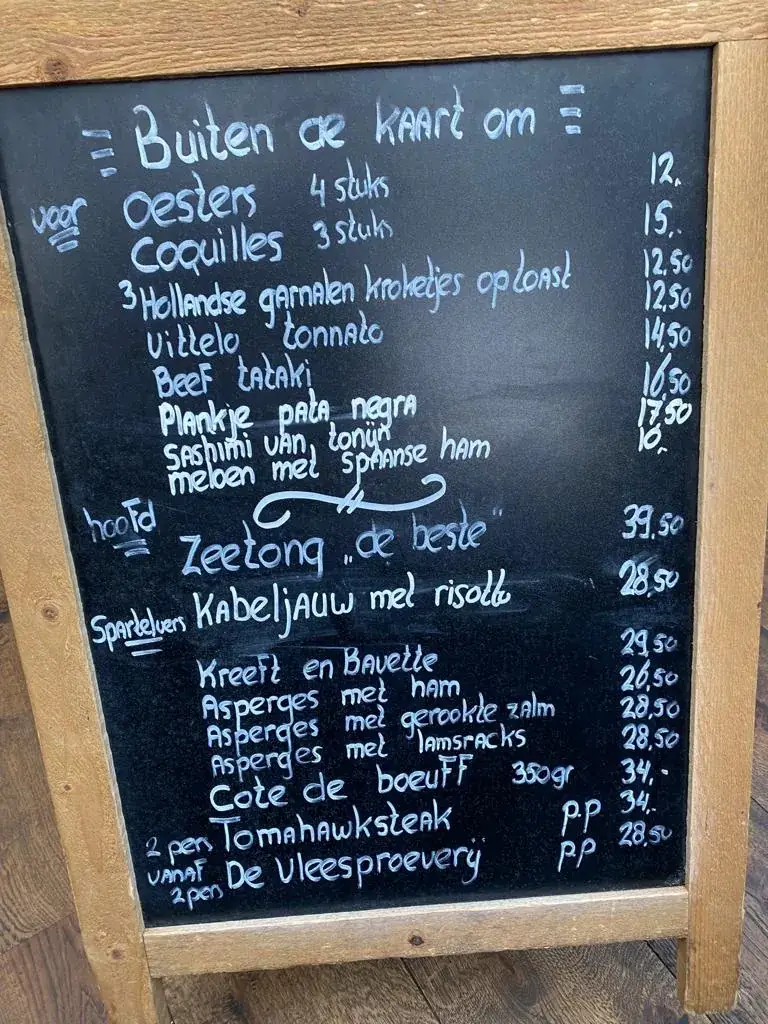 Buiten de kaart om
voor oesters 4 stuks 12,-
Coquilles 3 stuks 15,-
3 Hollandse garnalen kroketjes op toast 12,50
Vittelo tonnato 12,50
Beef tataki 14,50
Plankje pata negra 16,50
Sashimi van tonijn 17,50
meloen met spaanse ham 10,-
hoofd
Zeetong „de beste" 39,50
Spartelvers Kabeljauw met risotto 28,50
Kreeft en Bavette 29,50
Asperges met ham 26,50
Asperges met gerookte zalm 28,50
Asperges met lamsracks 28,50
Cote de boeuff 350gr 34,-
2 pers Tomahawksteak p.p 34,-
vanaf 2 pers De Vleesproeverij p.p 28,50